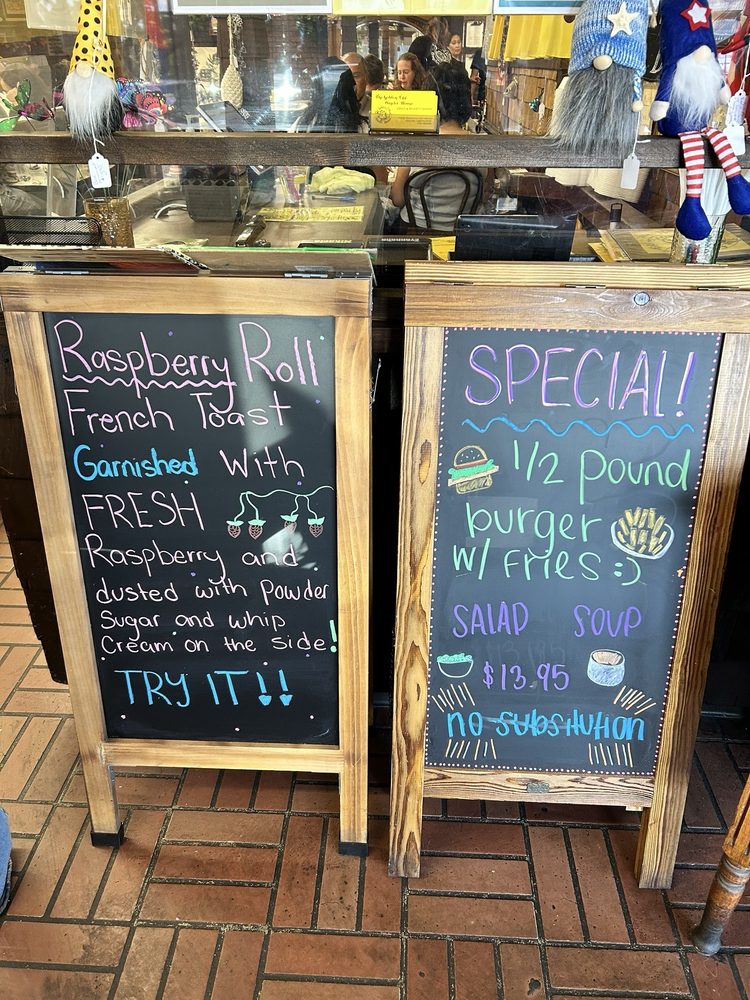 Raspberry Roll
French Toast
Garnished With
FRESH
Raspberry and
dusted with Powder
Sugar and whip
Cream on the side!
TRY IT!!
SPECIAL!
1/2 Pound
burger
w/ Fries :)
SALAD SOUP
$13.95
no subsitution